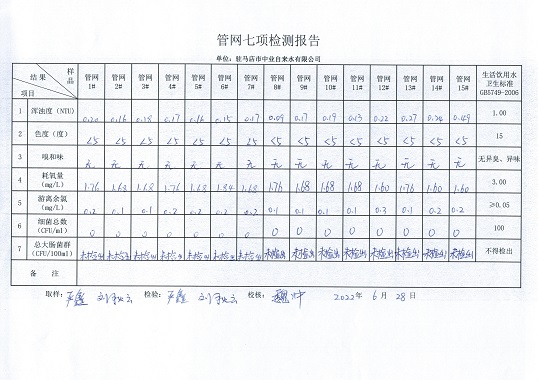 管网七项检测报告
单位：驻马店市中业自来水有限公司
结果 样品 项目 管网1# 管网2# 管网3# 管网4# 管网5# 管网6# 管网7# 管网8# 管网9# 管网10# 管网11# 管网12# 管网13# 管网14# 管网15# 生活饮用水卫生标准GB5749-2006
1 浑浊度（NTU） 0.20 0.16 0.18 0.17 0.16 0.15 0.17 0.09 0.17 0.19 0.13 0.22 0.27 0.24 0.49 1.00
2 色度（度） <5 <5 <5 <5 <5 <5 <5 <5 <5 <5 <5 <5 <5 <5 <5 15
3 嗅和味 无 无 无 无 无 无 无 无 无 无 无 无 无 无 无 无异臭、异味
4 耗氧量（mg/L） 1.76 1.68 1.68 1.76 1.68 1.84 1.68 1.76 1.68 1.68 1.68 1.60 1.76 1.60 1.60 3.00
5 游离余氯（mg/L） 0.2 0.1 0.1 0.2 0.2 0.2 0.2 0.1 0.1 0.2 0.1 0.3 0.1 0.2 0.2 ≥0.05
6 细菌总数（CFU/ml） 0 0 0 0 0 0 0 0 0 0 0 0 0 0 0 100
7 总大肠菌群（CFU/100ml） 未检出 未检出 未检出 未检出 未检出 未检出 未检出 未检出 未检出 未检出 未检出 未检出 未检出 未检出 未检出 不得检出
备 注
取样： 检验： 校核： 2022 年 6 月 28 日